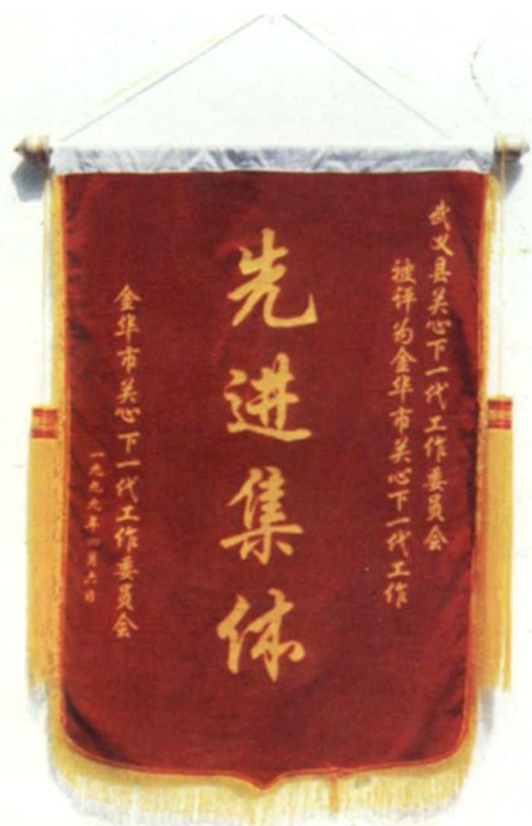 武义县关心下一代工作委员会
被评为金华市关心下一代工作
先进集体
金华市关心下一代工作委员会
一九九九年一月六日